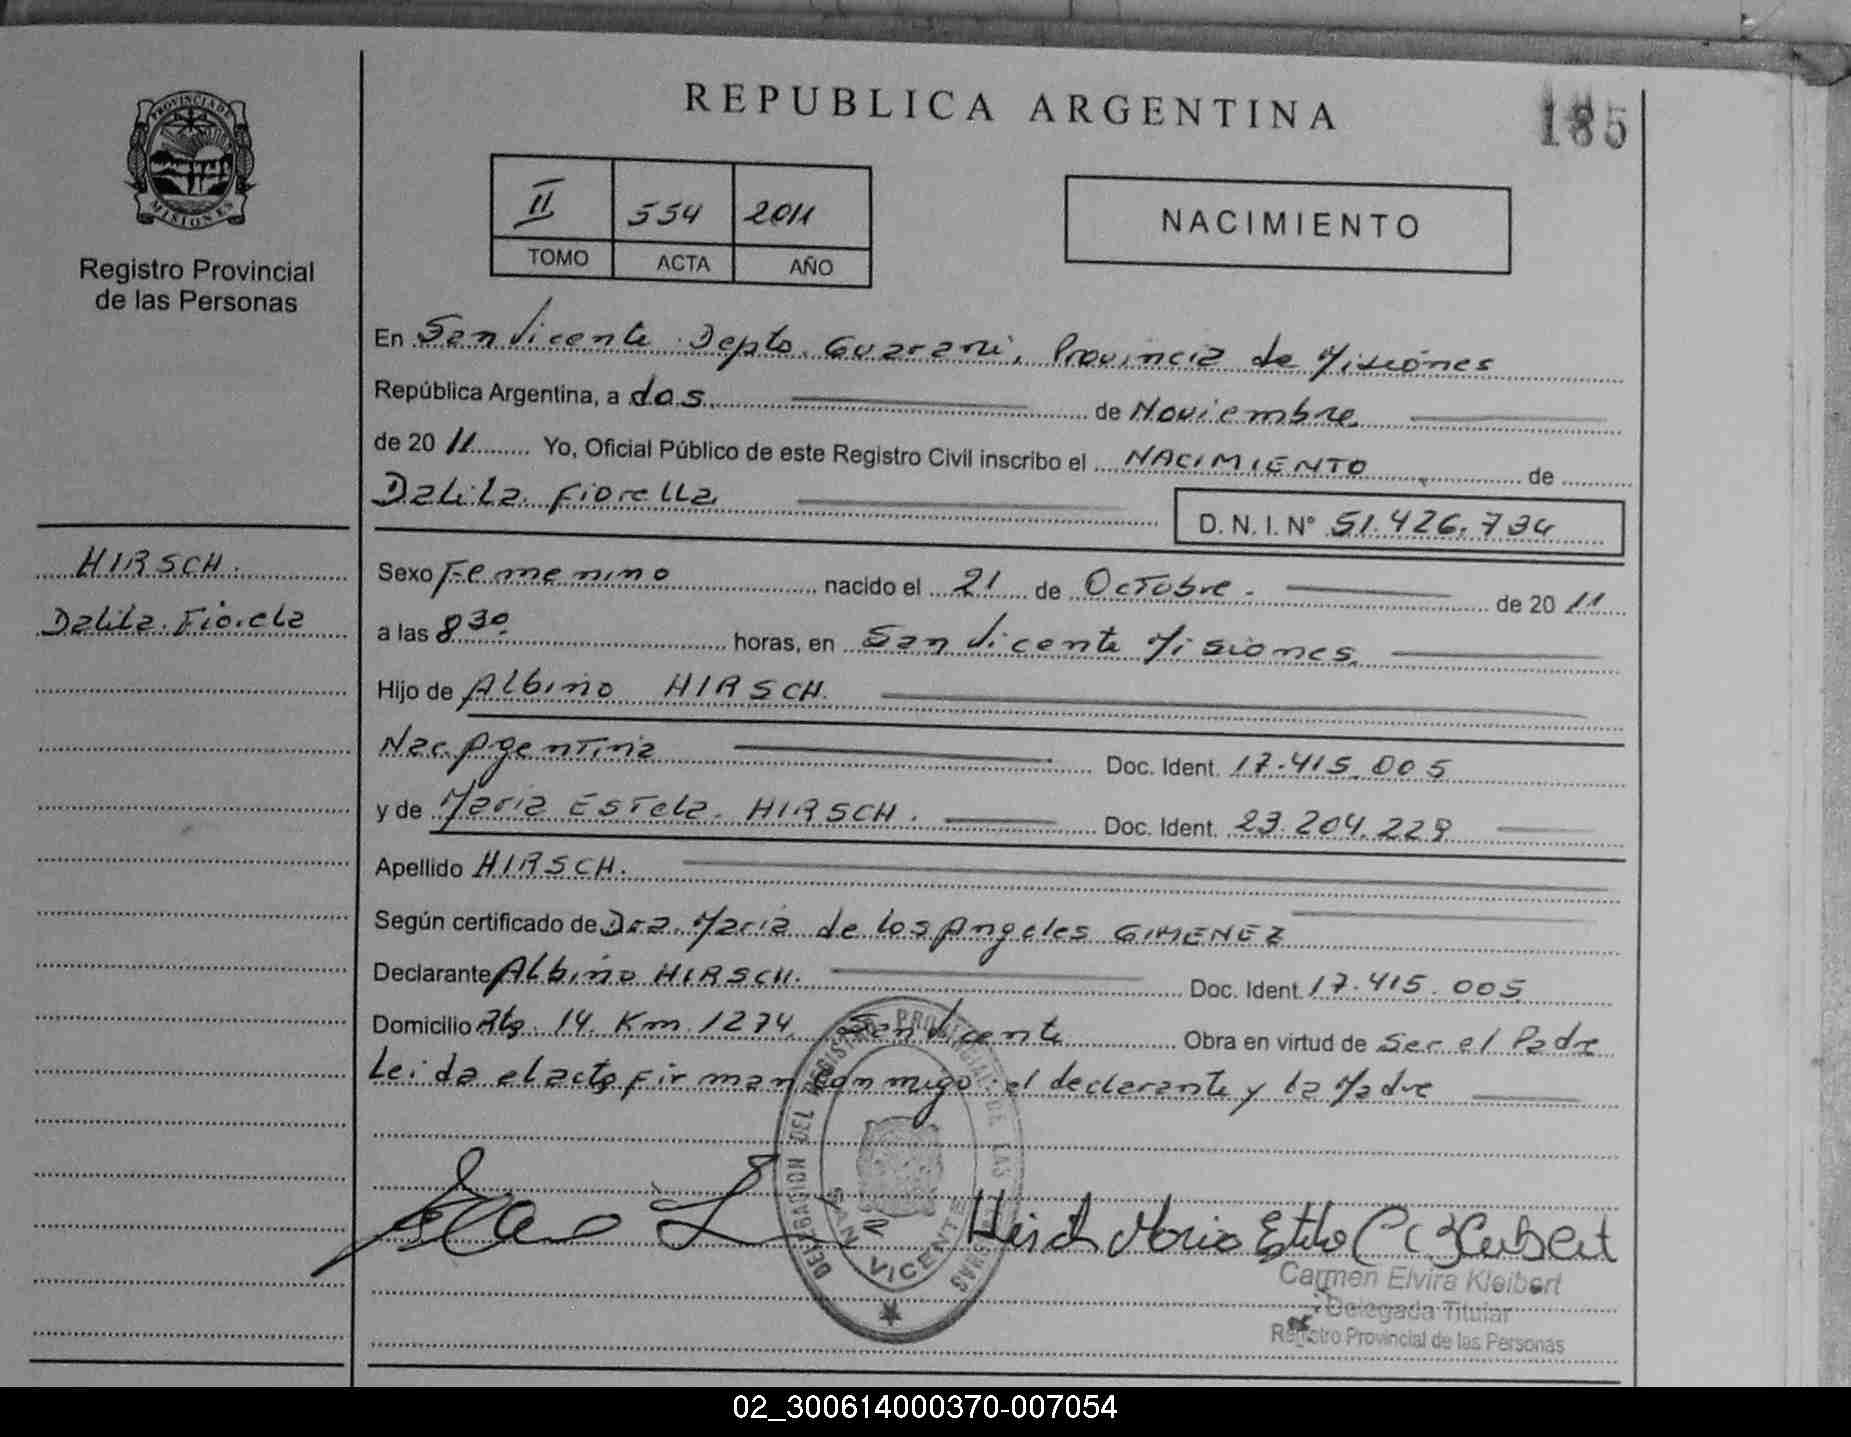 REPUBLICA ARGENTINA
185
PROVINCIA DE MISIONES
Registro Provincial
de las Personas
II 554 2011
TOMO ACTA AÑO
NACIMIENTO
En San Vicente Depto. Guarani, Provincia de Misiones
República Argentina, a dos de Noviembre
de 20 11 Yo, Oficial Público de este Registro Civil inscribo el NACIMIENTO de
Dalila Fiorella
D. N. I. N° 51.426.734
HIRSCH.
Dalila Fiorela
Sexo Femenino nacido el 21 de Octubre. de 20 11
a las 8 30 horas, en San Vicente Misiones
Hijo de Albino HIRSCH.
Nac. Agentina Doc. Ident. 17.415.005
y de Maria Estela HIRSCH. Doc. Ident. 23.204.229
Apellido HIRSCH.
Según certificado de Dra. Maria de los Angeles GIMENEZ
Declarante Albino HIRSCH. Doc. Ident. 17.415.005
Domicilio Rta. 14 Km. 1274 San Vicente Obra en virtud de Ser el Padre
Leida el acta firman conmigo: el declarante y la Madre
DELEGACION DEL REGISTRO PROVINCIAL DE LAS PERSONAS
SAN VICENTE
Hirsch Maria Estela
Carmen Elvira Kleibert
Delegada Titular
Registro Provincial de las Personas
02_300614000370-007054